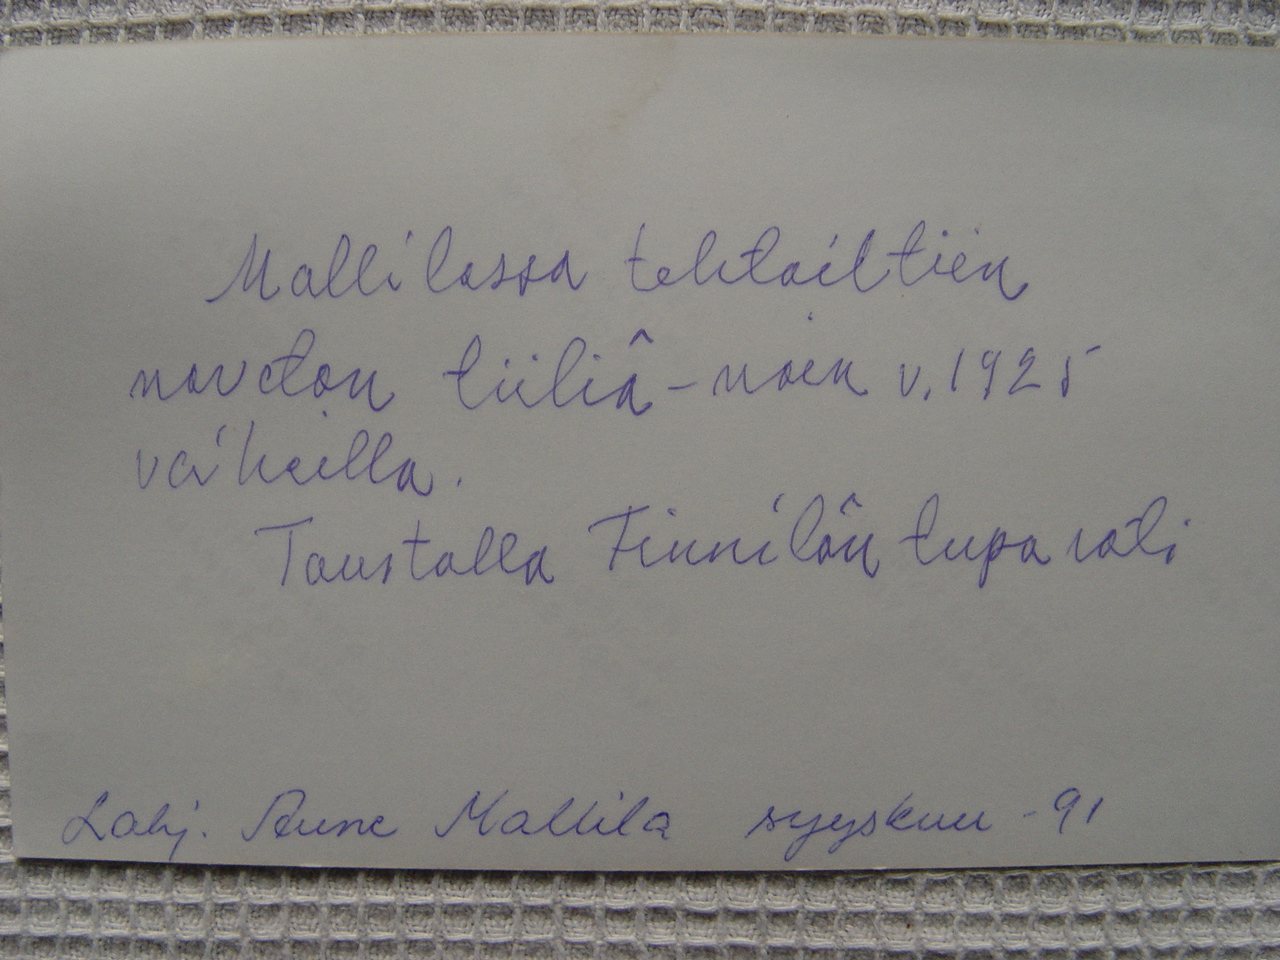 Mallilassa tehtailtiin
navetan tiiliä - noin v. 1925
vaiheilla.
Taustalla Finnilän tupa väli
Lahj. Aune Mallila syyskuu -91